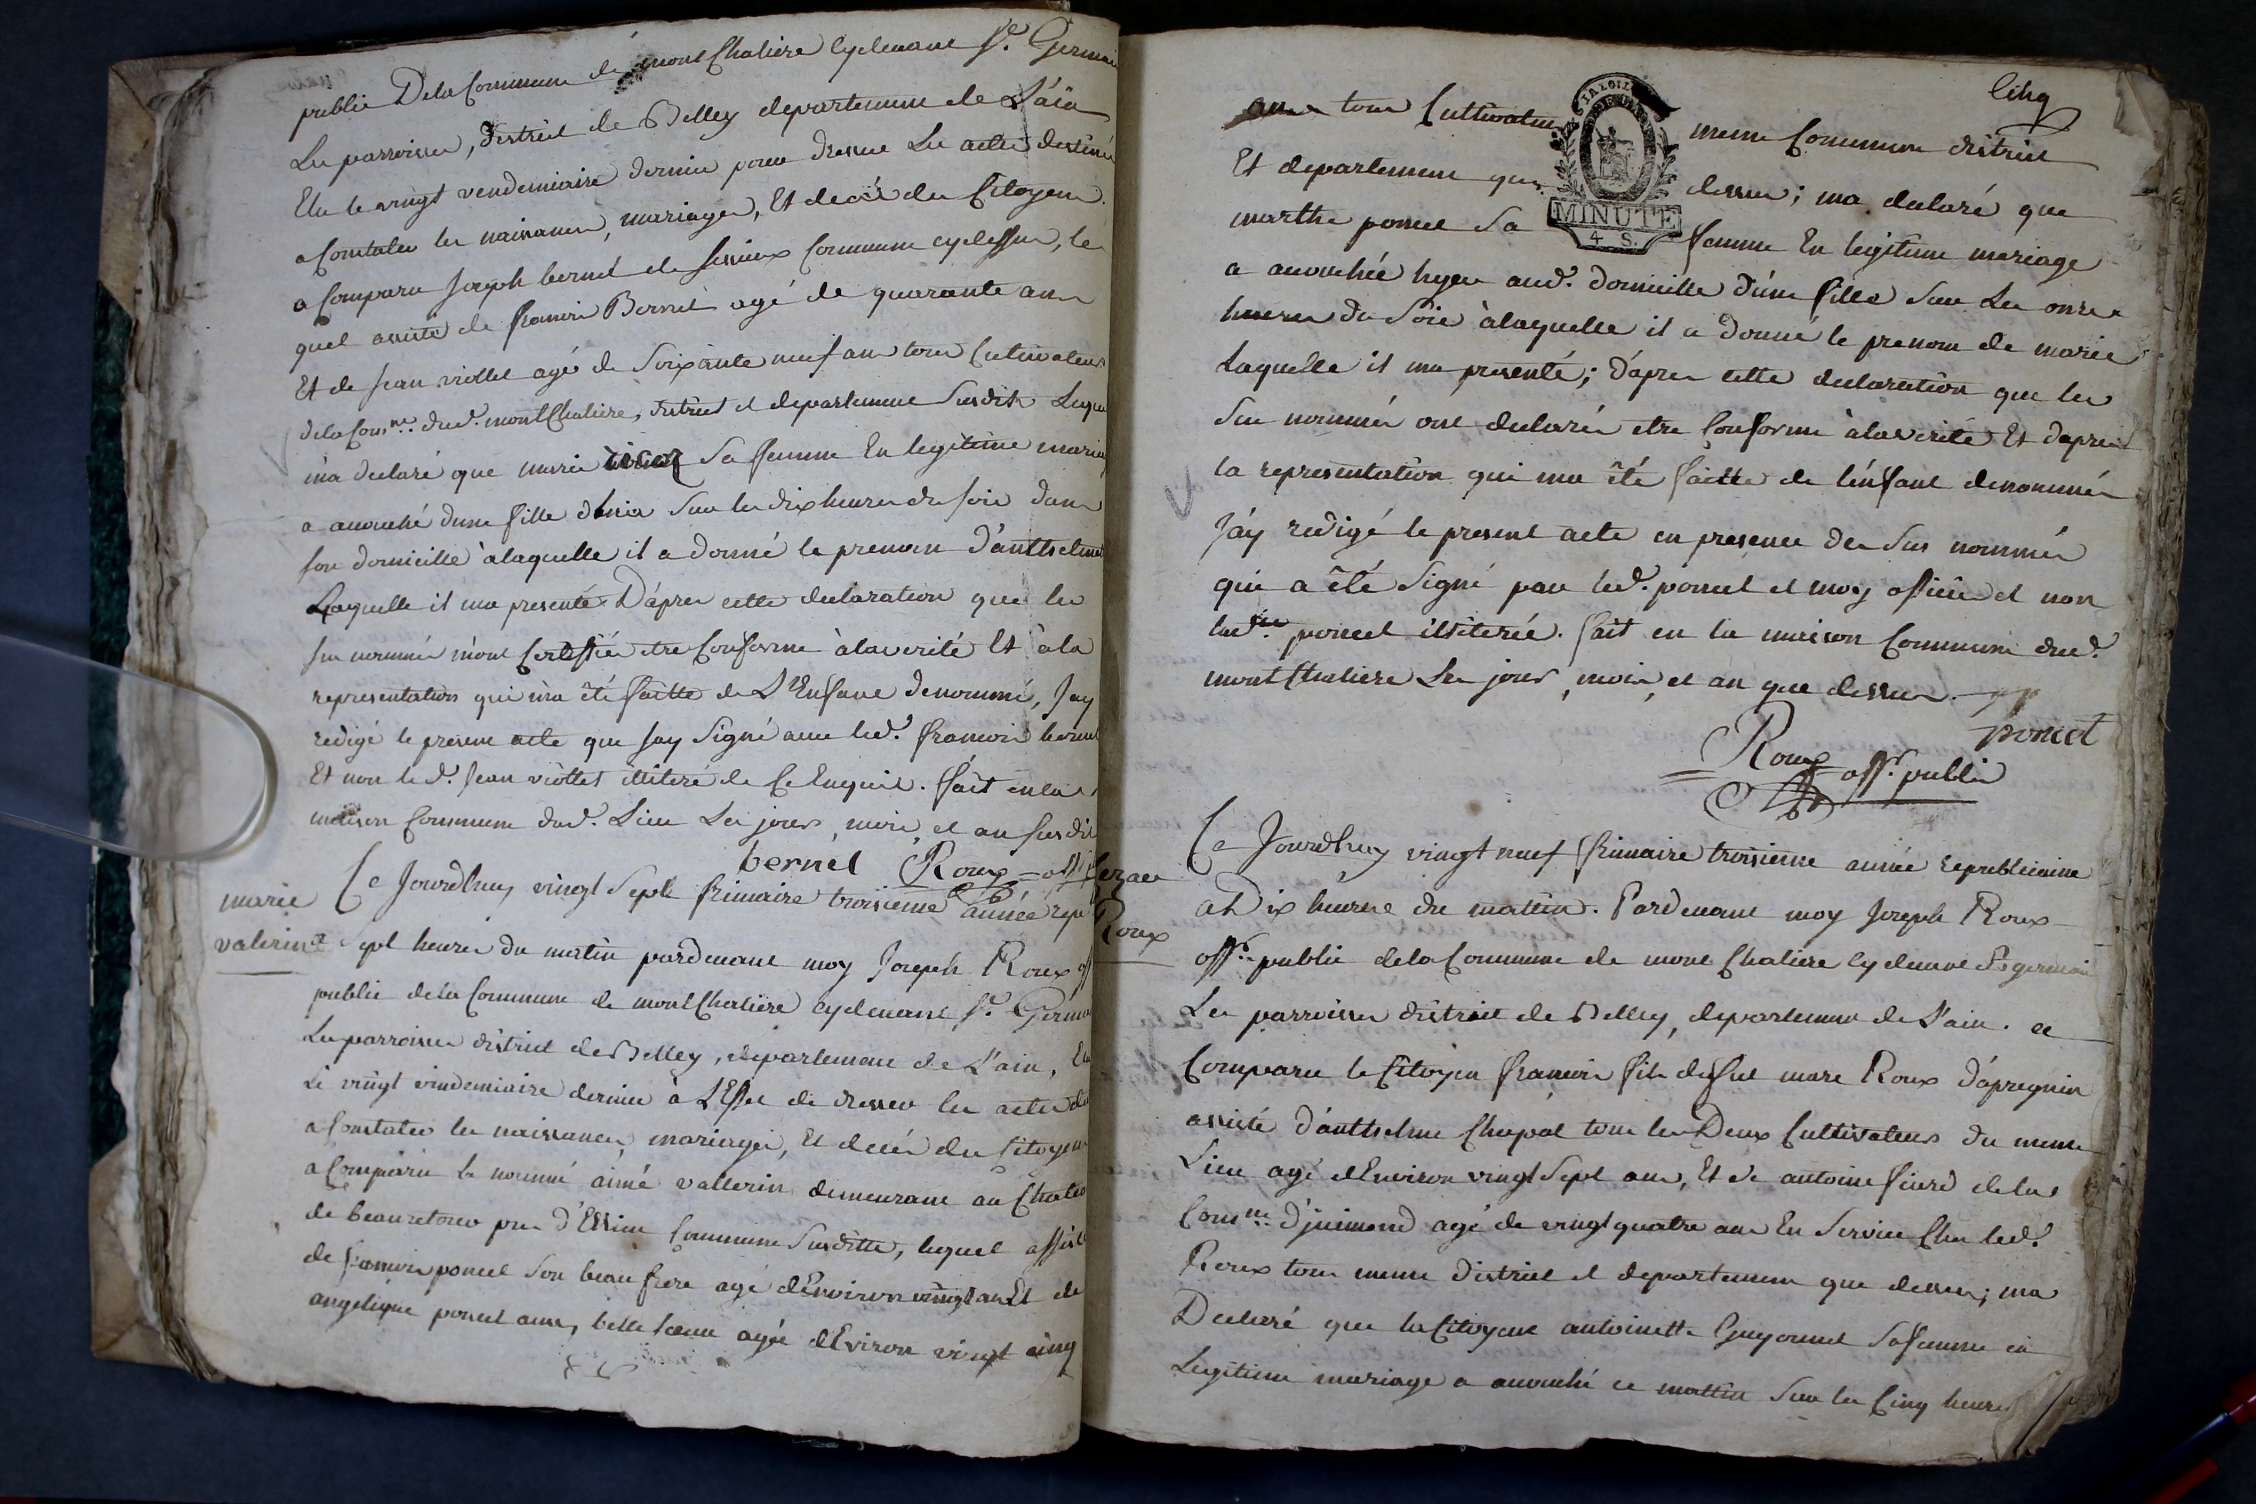 public De la Commune de mont Chaliere cydevant St. Germain
Les parroisses, district de Belley departement de L'ain
Elu le vingt vendemiaire dernier pour dresser Les actes destinés
a Constater les naissances, mariages, Et decés des Citoyens.
a Comparu Joseph bernel de Commune cydessus, le
quel assisté de francois Bernel agé de quarante ans
Et de Jean viollet agé de Soixante neuf ans tous Cultivateurs
dela Comne. dud. mont Chaliere, district et departement Susdits Lequel
m'a declaré que marie Sa femme En legitime mariage
a accouché dune fille Sur les dix heures du soir dans
son domicille à laquelle il a donné le prenom D'antthelmette
Laquelle il ma presenté D'apres cette declaration que les
sus nommés m'ont Certifié etre Conforme à la verité Et à la
representation qui m'a été faitte de L'Enfant denommé, Jay
redigé le present acte que Jay Signé avec led. francois bernel
Et non le d. Jean viollet illiteré de Ce Enquis. fait en la
maison Commune dud. Lieu Les jours, mois et an susdit
bernel Roux off
marie
valerin
Ce Jourdhuy vingt Sept frimaire troisieme année repu
a Sept heures du matin pardevant moy Joseph Roux off
public de la Commune de mont Chaliere cydevant St. Germain
Les parroisses district de Belley, departement de L'ain, Elu
Le vingt vindemiaire dernier à L'Effet de dresser les actes des
a Constater les naissances mariages, Et decés des Citoyens
a Comparu le nommé aimé vallerin demeurant au Chateau
de beauretour pres d'Essieu Commune Susditte, lequel assisté
de francois poncet Son beau frere agé d'Environ vingt ans Et de
angelique poncet aussy belle soeur agée d'Eviron vingt cinq
Cinq
ans tous Cultivateurs meme Commune district
Et departement que dessus; ma declaré que
marthe poncet Sa femme En legitime mariage
a accouchée hyer aud. domicille d'une fille Sur Les onze
heures du Soir à laquelle il a donné le prenom de marie
Laquelle il ma presenté; d'apres cette declaration que les
Sus nommés ont declarés etre Conforme à la verité Et dapres
la representation qui ma été faitte de l'énfant denommée
J'áy redigé le present acte en presence des Sus nommés
qui a été Signé par led. poncet et moy officier et non
lad.te poncet illiterée. fait en la maison Commune dud.
mont Chaliere Les jour, mois, et an que dessus.
poncet
Roux off. public
MINUTE
4 S.
Roux
Ce Jourdhuy vingt neuf frimaire troisieme année republicaine
a Dix heures du mattin. Pardevant moy Joseph Roux
offr. public dela Commune de mont Chaliere cydevant St germain
Les parroisses district de Belley, departement de L'ain. a
Comparu le Citoyen francois fils de feu marc Roux d'apregnin
assisté d'antthelme Chapot tous les Deux Cultivateurs du meme
Lieu agé d'Environ vingt Sept ans, Et de antoine de la
Comne. agé de vingt quatre ans En Service Chez led.
Roux tous meme district et departement que dessus; ma
Declaré que la Citoyene antoinette Guyonnet Sa femme en
Legitime mariage a accouché ce mattin Sur les Cinq heures